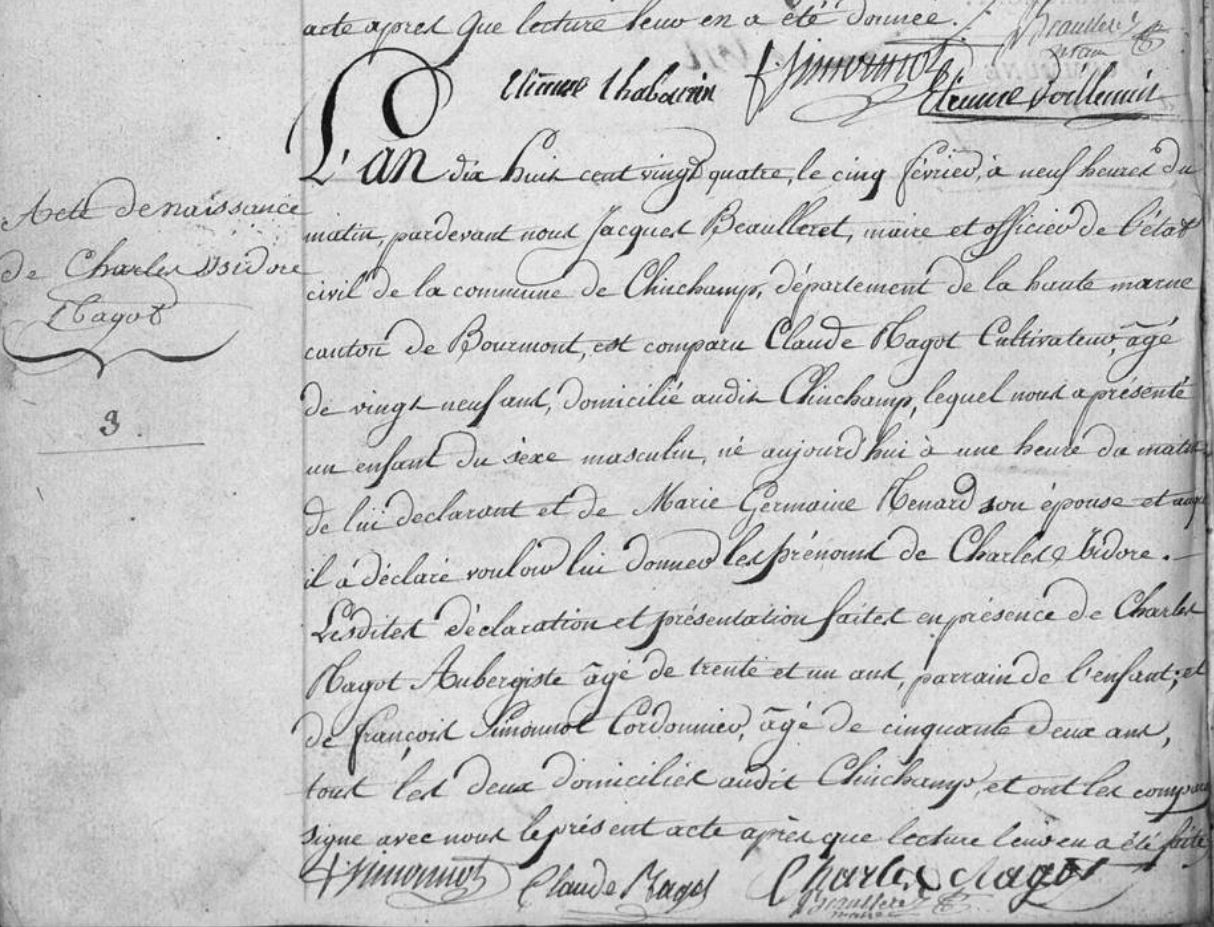 acte après que lecture leur en a été donnée. Beaulleret
maire
Etienne Chabouin f. Simonnot Etienne Voillemin
L'an dix huit cent vingt quatre, le cinq février, à neuf heures du
matin, pardevant nous Jacques Beaulleret, maire et officier de l'état
civil de la commune de Chinchamp, département de la haute marne
canton de Bourmont, est comparu Claude Magot Cultivateur, âgé
de vingt neuf ans, domicilié audit Chinchamp, lequel nous a présenté
un enfant du sexe masculin, né aujourd'hui à une heure du matin
de lui déclarant et de Marie Germaine Renard son épouse et auquel
il a déclaré vouloir lui donner les prénoms de Charles Isidore.
Lesdites déclaration et présentation faites en présence de Charles
Magot Aubergiste âgé de trente et un ans, parrain de l'enfant; et
de françois Simonnot Cordonnier, âgé de cinquante deux ans,
tous les deux domiciliés audit Chinchamp, et ont les comparus
signé avec nous le présent acte après que lecture leur en a été faite
f. Simonnot Claude Magot Charles Magot
Beaulleret
maire
Acte de naissance
de Charles Isidore
Magot
3